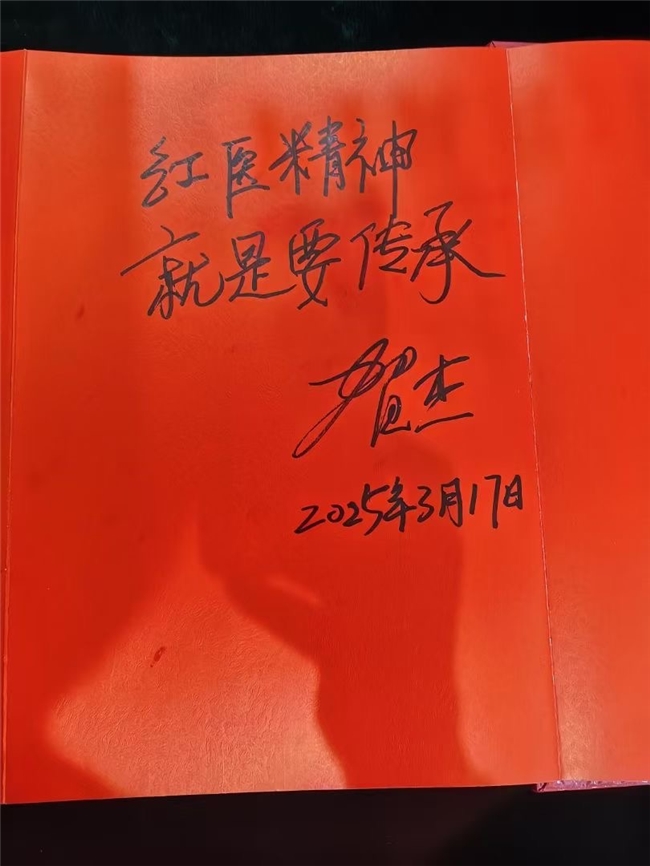 红医精神
就是要传承
贺杰
2025年3月17日